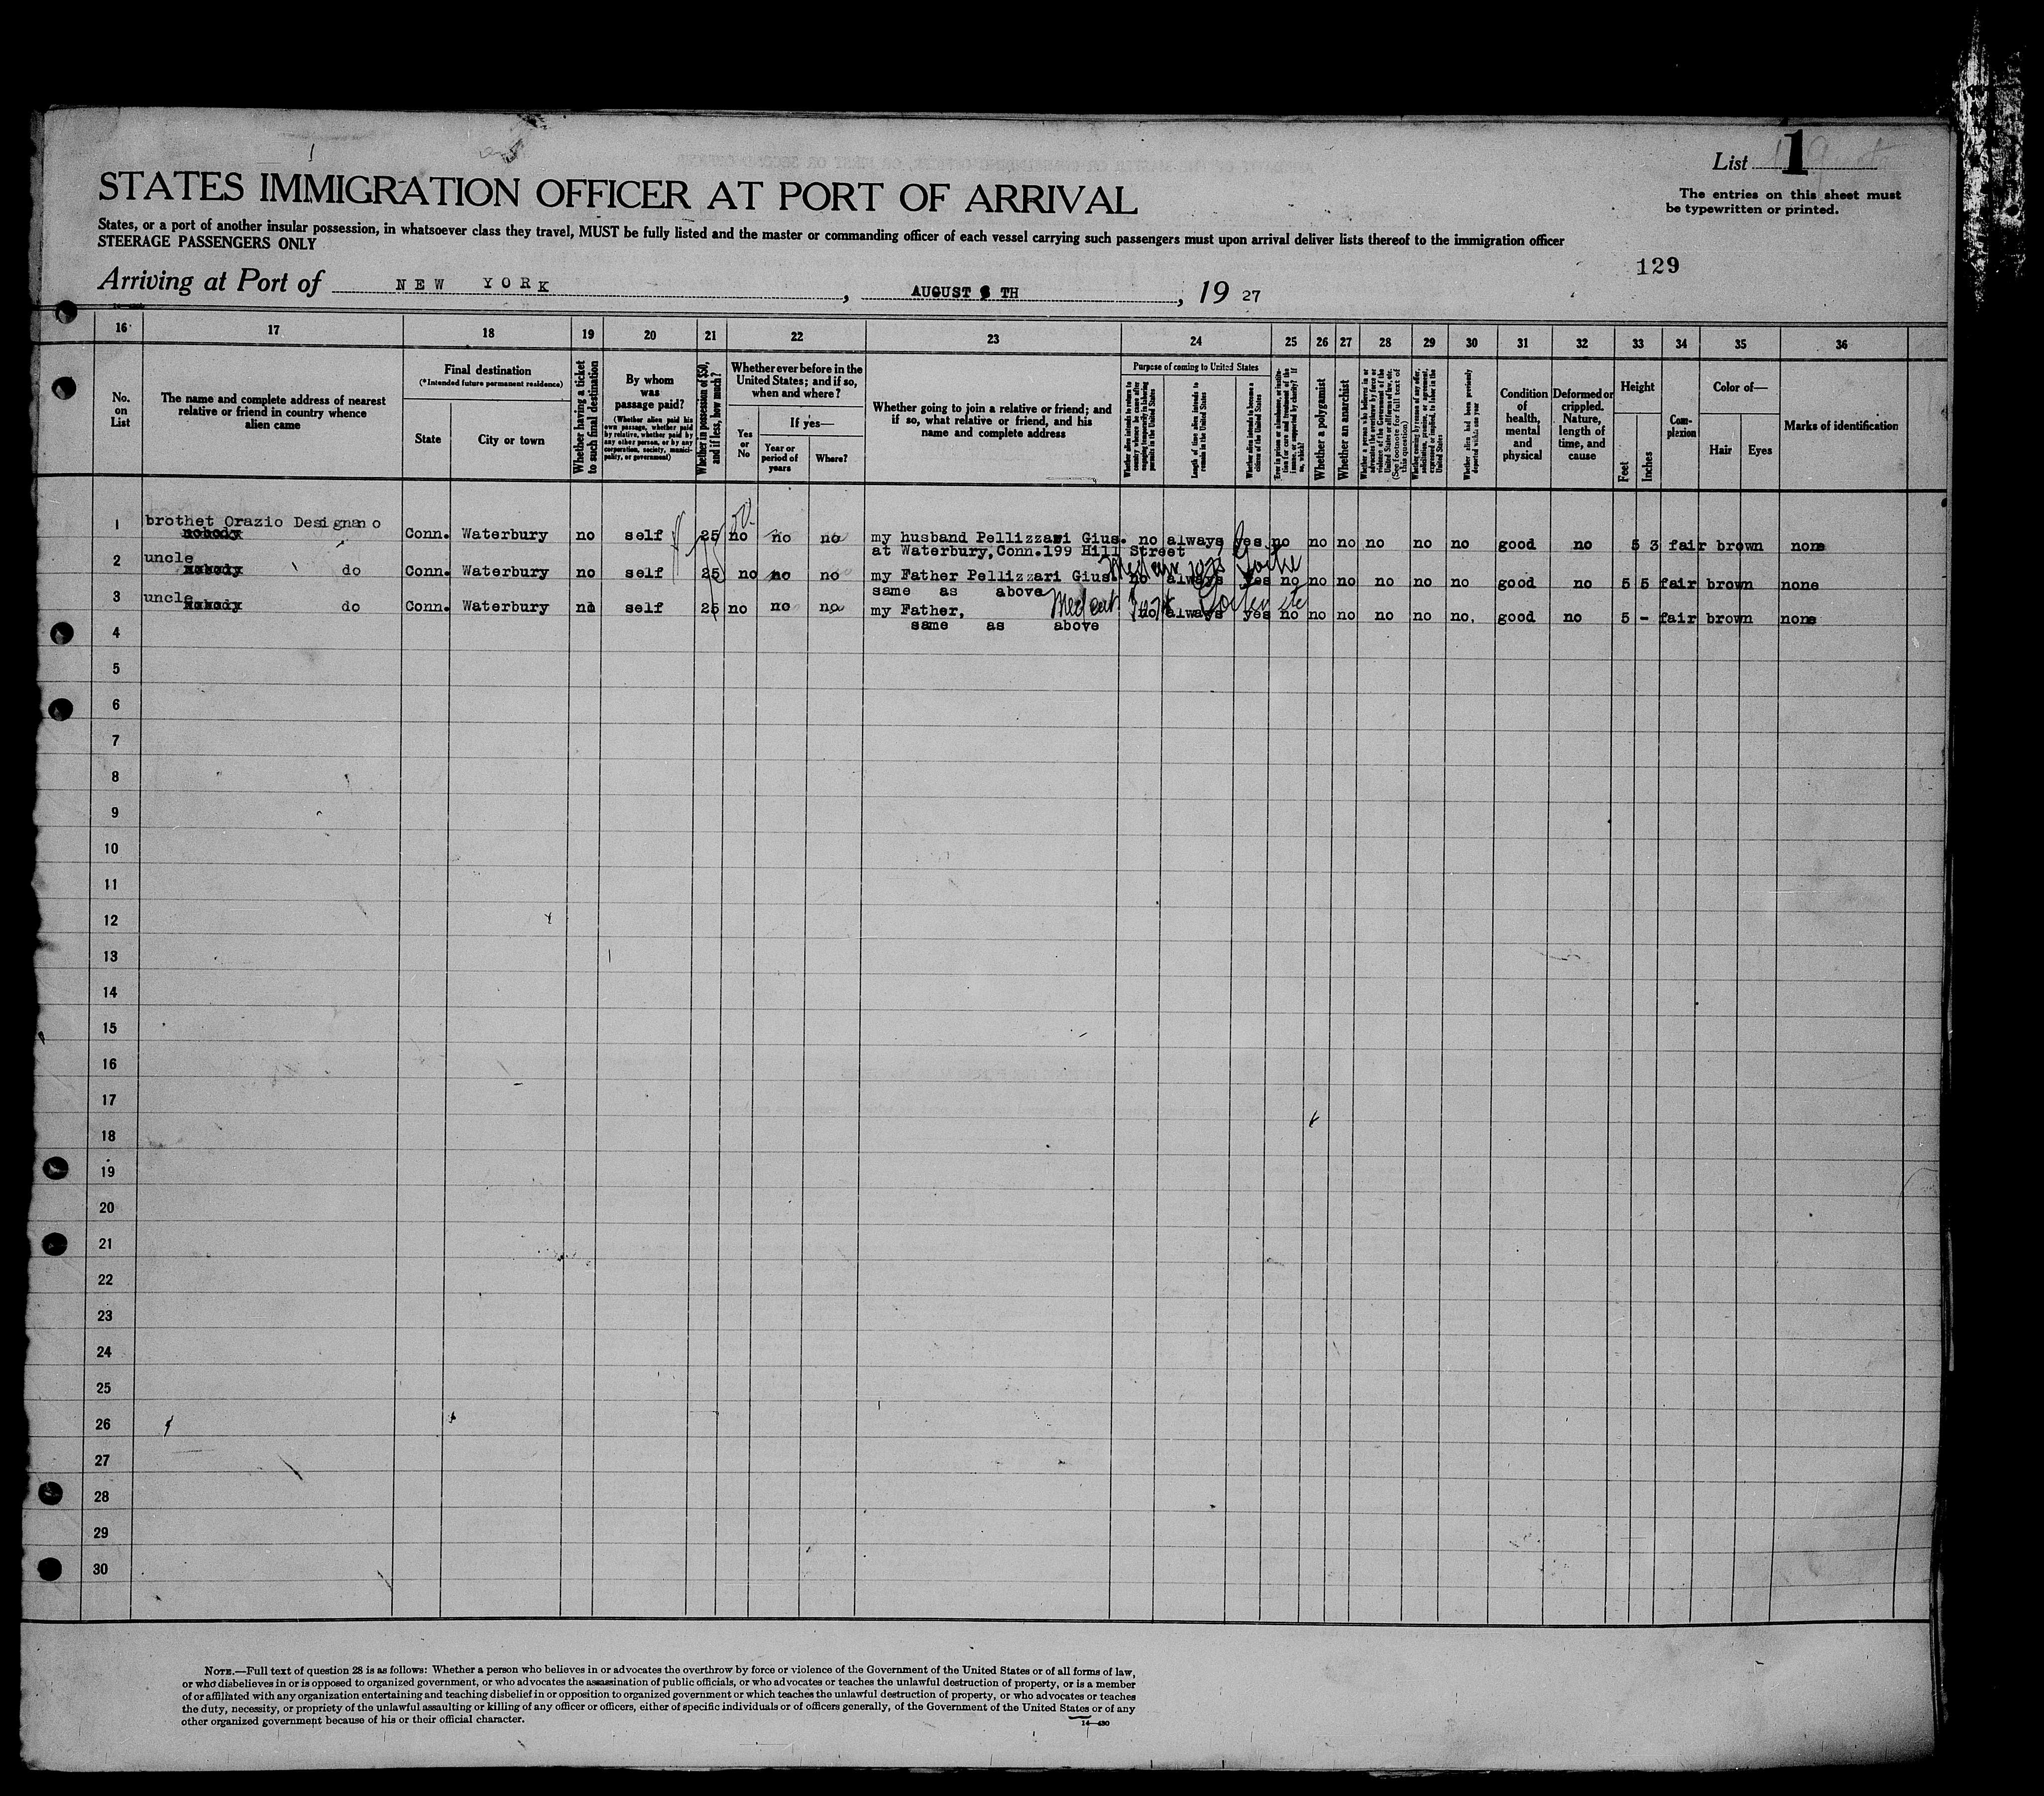 List 1
STATES IMMIGRATION OFFICER AT PORT OF ARRIVAL
The entries on this sheet must
be typewritten or printed.
States, or a port of another insular possession, in whatsoever class they travel, MUST be fully listed and the master or commanding officer of each vessel carrying such passengers must upon arrival deliver lists thereof to the immigration officer
STEERAGE PASSENGERS ONLY
129
Arriving at Port of NEW YORK, AUGUST TH, 19 27
16 17 18 19 20 21 22 23 24 25 26 27 28 29 30 31 32 33 34 35 36
No.
on
List
The name and complete address of nearest
relative or friend in country whence
alien came
Final destination
(*Intended future permanent residence)
State
City or town
Whether having a ticket
to such final destination
By whom
was
passage paid?
(Whether alien paid his
own passage, whether paid
by relative, whether paid by
any other person, or by any
corporation, society, munici-
pality, or government)
Whether in possession of $50,
and if less, how much?
Whether ever before in the
United States; and if so,
when and where?
Yes
or
No
If yes—
Year or
period of
years
Where?
Whether going to join a relative or friend; and
if so, what relative or friend, and his
name and complete address
Purpose of coming to United States
Whether alien intends to return to
country whence he came after
engaging temporarily in laboring
pursuits in the United States
Length of time alien intends to
remain in the United States
Whether alien intends to become a
citizen of the United States
Ever in prison or almshouse, or institu-
tion for care and treatment of the
insane, or supported by charity? If
so, which?
Whether a polygamist
Whether an anarchist
Whether a person who believes in or
advocates the overthrow by force or
violence of the Government of the
United States or all forms of law, etc.
(See footnote for full text of
this question)
Whether coming by reason of any offer,
solicitation, promise, or agreement,
expressed or implied, to labor in the
United States
Whether alien had been previously
deported within one year
Condition
of
health,
mental
and
physical
Deformed or
crippled.
Nature,
length of
time, and
cause
Height
Feet
Inches
Com-
plexion
Color of—
Hair
Eyes
Marks of identification
1 brothet Orazio Designano
nobody Conn. Waterbury no self 25 50 no no no my husband Pellizzari Gius. no always yes no no no no no no good no 5 3 fair brown none
at Waterbury, Conn. 199 Hill Street
2 uncle
nobody do Conn. Waterbury no self 25 no no no my Father Pellizzari Gius. no always yes no no no no no no good no 5 5 fair brown none
same as above
3 uncle
nobody do Conn. Waterbury no self 25 no no no my Father, no always yes no no no no no no. good no 5 - fair brown none
same as above
4
5
6
7
8
9
10
11
12
13
14
15
16
17
18
19
20
21
22
23
24
25
26
27
28
29
30
NOTE.—Full text of question 28 is as follows: Whether a person who believes in or advocates the overthrow by force or violence of the Government of the United States or of all forms of law,
or who disbelieves in or is opposed to organized government, or who advocates the assassination of public officials, or who advocates or teaches the unlawful destruction of property, or is a member
of or affiliated with any organization entertaining and teaching disbelief in or opposition to organized government or which teaches the unlawful destruction of property, or who advocates or teaches
the duty, necessity, or propriety of the unlawful assaulting or killing of any officer or officers, either of specific individuals or of officers generally, of the Government of the United States or of any
other organized government because of his or their official character.
14—430